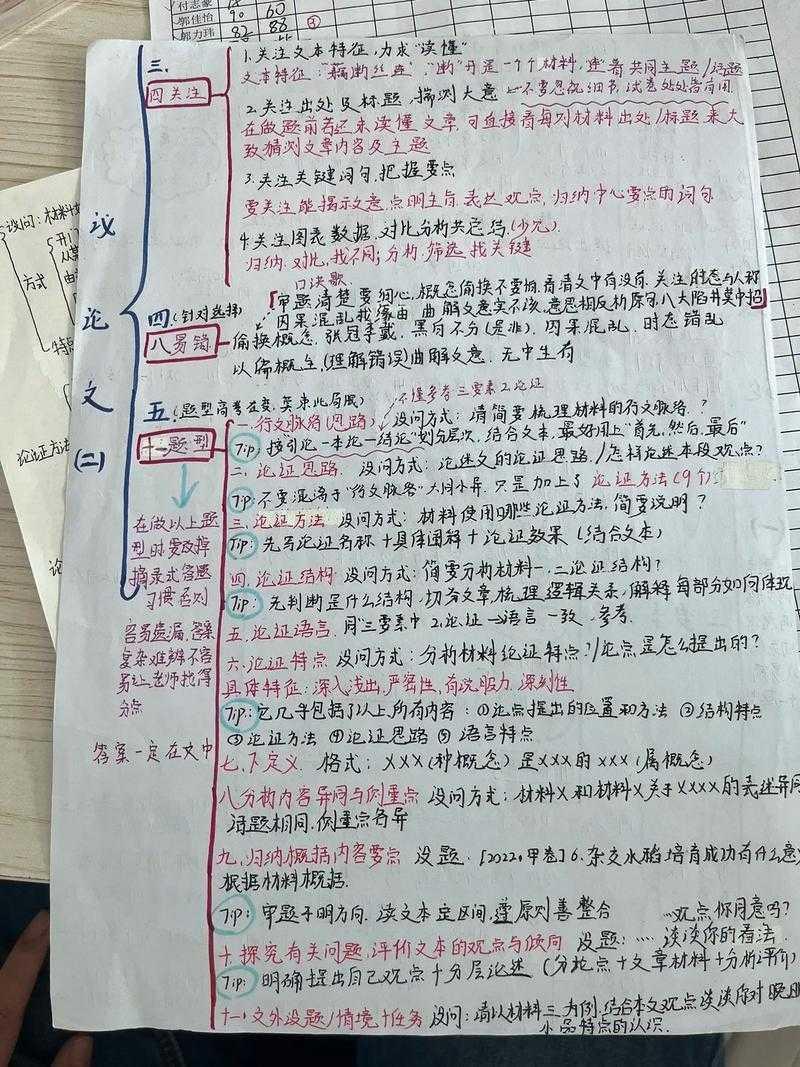 付志豪
郭佳怡 90 60
郭力玮 82 88
议论文(二)
三.
四关注
1.关注文本特征,力求"读懂"
文本特征:"藕断丝连":"断"开是一个个材料,连着共同主题/话题
2.关注出处及标题,揣测大意 不要忽视细节,试卷处处皆有用
在做题前若还未读懂文章,可直接看每则材料出处/标题来大
致猜测文章内容及主题
3.关注关键词句,把握要点
要关注能揭示文意,点明主旨,表达观点,归纳中心要点的词句
4.关注图表数据,对比分析共总结(少见)
归纳,对比,找不同;分析,筛选,找关键
口诀歌
四.(针对选择)
八易错
「审题清楚要细心,概念偷换不要怕,看清文中有没有,关注时态与人称
因果混乱找缘由,曲解文意实不该,意思相反析原句,八大陷井莫中招」
偷换概念,张冠李戴,黑白不分(是非),因果混乱,时态错乱
以偏概全,(理解错误)曲解文意,无中生有
五.(题型高考在变,莫束此局限)
十一题型
在做以上题
型时要改掉
摘录式答题
习惯否则
容易遗漏,答案
复杂难辨不容
易让老师找得
分点
答案一定在文中
不懂参考三要素2.论证
一.行文脉络(思路) 设问方式:请简要梳理材料的行文脉络.?
Tip:按引论—本论—结论"划分层次,结合文本,最好用上"首先,然后,最后"
二.论证思路 设问方式:论述文的论证思路/怎样论述本段观点?
Tip不要混淆于"行文脉络"大同小异.只是加上了论证方法(9个)
三.论证方法 设问方式:材料使用哪些论证方法,简要说明?
Tip:先写论证名称+具体阐释+论证效果(结合文本)
四.论证结构 设问方式:简要分析材料一,二论证结构?
Tip:先判断是什么结构,切分文章,梳理逻辑关系,解释每部分如何体现
五.论证语言 同"三要素中2.论证→语言一致,参考.
六.论证特点 设问方式:分析材料论证特点?/论点是怎么提出的?
具体特征:深入浅出,严密性,有说服力,深刻性
Tip:它几乎包括了以上所有内容:①论点提出的位置和方法 ②结构特点
③论证方法 ④论证思路 ⑤语言特点
七.下定义. 格式:XXX(种概念)是XXX的XXX(属概念)
八分析内容异同与侧重点 设问方式:材料X和材料X关于XXXX的表述异同
话题相同,侧重点各异
九.归纳概括内容要点 设题.[2022.甲卷]6.杂交水稻培育成功有什么意
根据材料概括.
Tip:审题干明方向.读文本定区间,遵原则善整合 …观点你同意吗?
十.探究有关问题,评价文本的观点与倾向 设题:…谈谈你的看法.
Tip:明确提出自己观点+分层论述(分论点+文章材料+分析评价)
十一.文外设题/情境+任务 设问:请以材料三为例,结合本文观点谈谈你对晚明
小品特点的认识.
设问:材料
方式
特点
论证方法
论